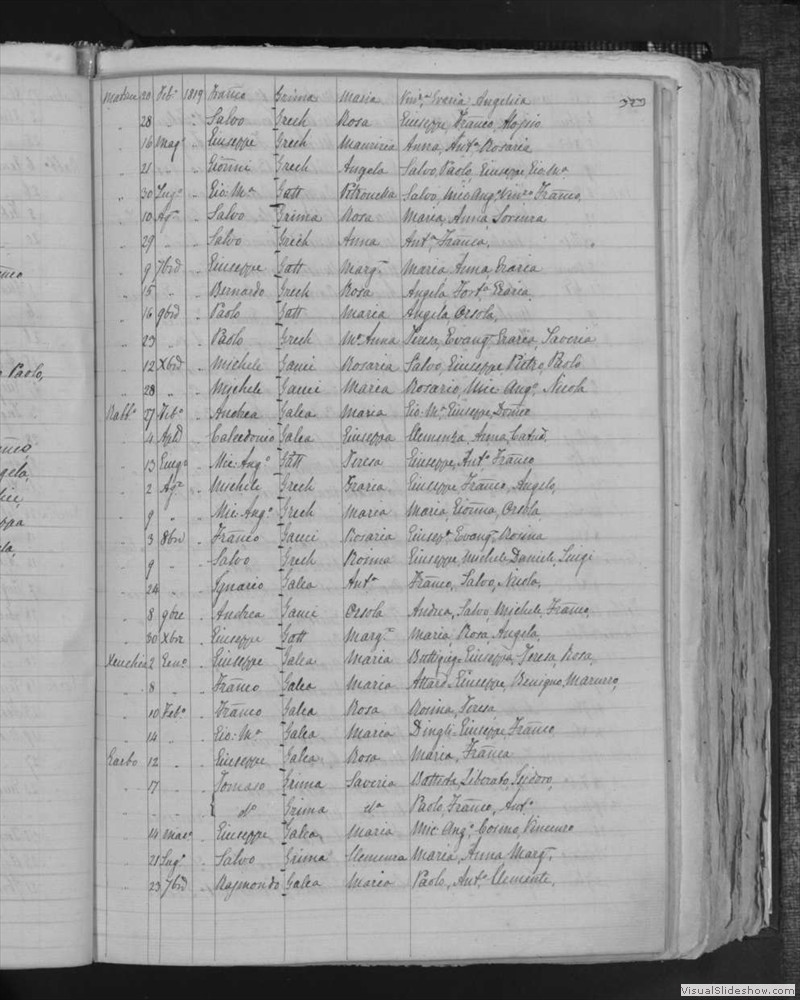 20 Feb.o 1819 Franco Grima Maria Vinc.a Evaria Angelica 523
" 28 " " Salvo Grech Rosa Giuseppe Franco, Aloysio
" 16 Mag.o " Giuseppe Grech Maurizia Anna, Ant.a Rosaria
" 21 " " Gionni Grech Angela Salvo, Paolo, Giuseppe Gio: M.a
" 30 Lug.o " Gio: M.a Gatt Petronilla Salvo, Mic: Ang.o Vinc.o Franco,
" 10 Ag.o " Salvo Grima Rosa Maria, Anna,
" 29 " " Salvo Grech Anna Ant.a Franca,
" 9 7bre " Giuseppe Gatt Marg.a Maria, Anna, Grazia
" 15 " " Bernardo Grech Rosa Angela, Fort.a Grazia,
" 16 9bre " Paolo Gatt Maria Angela, Orsola,
" 23 " " Paolo Grech M.a Anna Teresa, Evang.a Grazia, Saveria
" 12 Xbre " Michele Gauci Rosaria Salvo, Giuseppe Pietro, Paolo
" 28 " " Michele Gauci Maria Rosario, Mic: Ang.o Nicola
Rabb.o 27 Feb.o " Andrea Galea Maria Gio: M.a Giuseppe, Dom.co
" 4 Aple " Calcedonio Galea Giuseppa Clemenza, Arena,
" 13 Giug.o " Mic: Ang.o Gatt Teresa Giuseppe, Ant.o Franco
" 2 Ag.o " Michele Grech Grazia Giuseppe Franco, Angelo,
" 9 " " Mic: Ang.o Grech Maria Maria, Gionna, Orsola
" 3 8bre " Franco Gauci Rosaria Giusep.a Evang.a Rosina
" 9 " " Salvo Grech Rosina Giuseppe, Michele Daniele, Luigi
" 24 " " Ignazio Galea Ant.a Franco, Salvo, Nicola,
" 8 9bre " Andrea Gauci Orsola Andrea, Salvo, Michele, Franco,
" 30 Xbre " Giuseppe Gatt Marg.a Maria Rosa, Angela,
2 Gen.o " Giuseppe Galea Maria Buttigieg Giuseppa, Teresa, Rosa,
" 8 " " Franco Galea Maria Attard Giuseppe, Benigno,
" 10 Feb.o " Franco Galea Rosa Rosina, Teresa
" 14 " " Gio: M.a Galea Maria Dingli Giuseppe, Franco
Garbo 12 " " Giuseppe Galea Rosa Maria, Franca
" 17 " " Tomaso Grima Saveria Battista, Liberato, Isidoro,
" " " " d.o Grima d.a Paolo, Franco, Ant.o
" 14 " Giuseppe Galea Maria Mic: Ang.o Cosmo, Vincenzo
" 21 Lug.o " Salvo Grima Clemenza Maria, Anna, Marg.a,
" 23 7bre " Raymondo Galea Maria Paolo, Ant.o Clemente,
Paolo,
VisualSlideshow.com